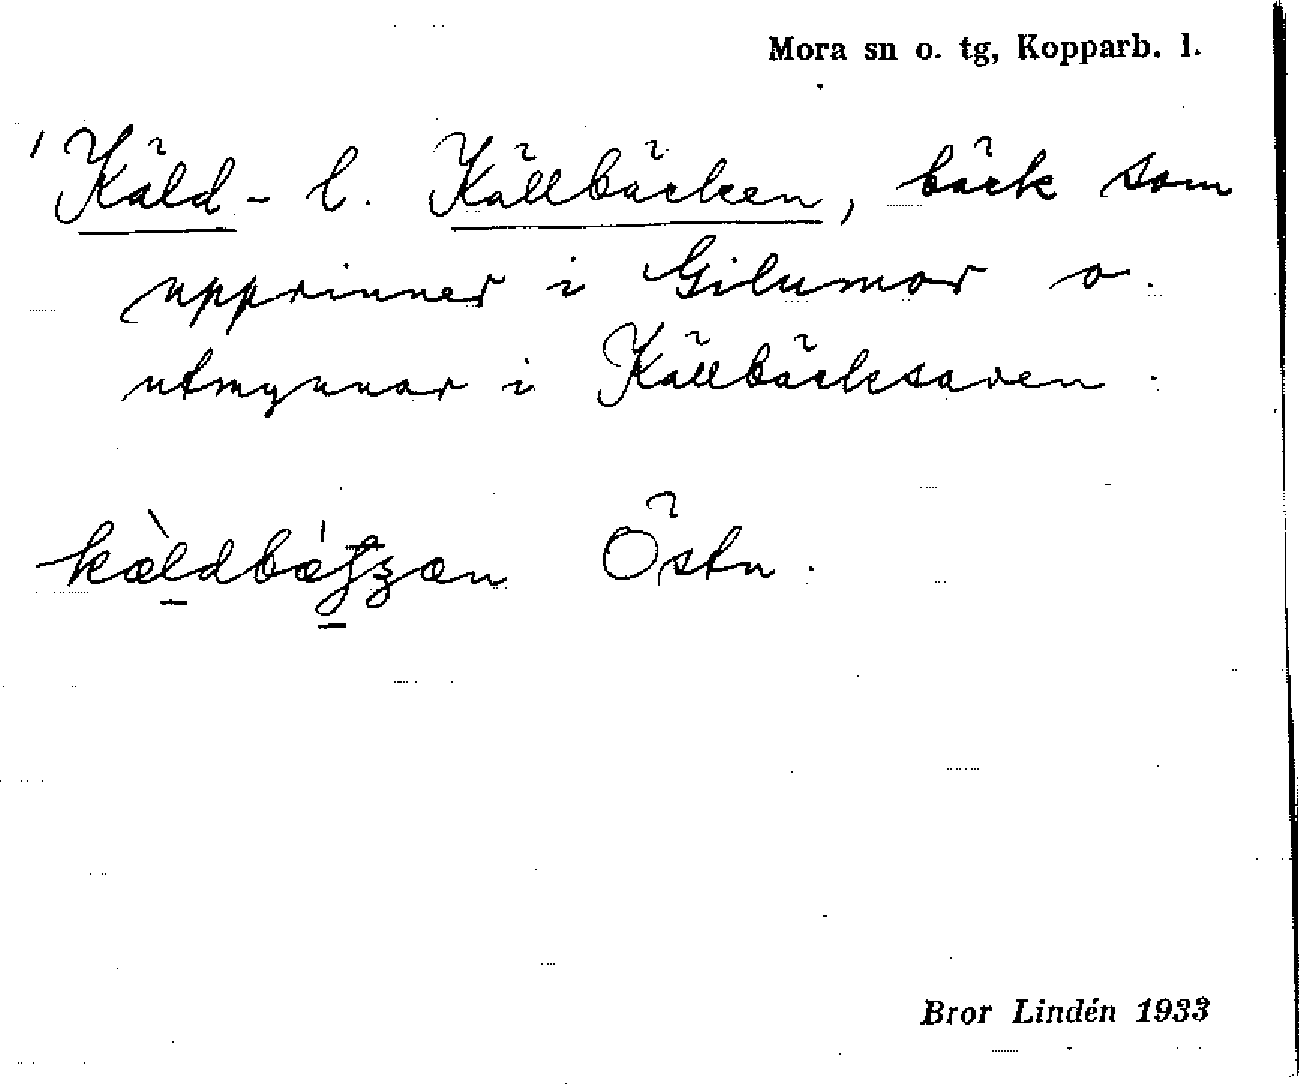 Mora sn o. tg, Kopparb. l.
'Käld- l. Källbäcken, bäck som
upprinner i Gilumor o.
utmynnar i Källbäcksaven.
Östn.
Bror Lindén 1933